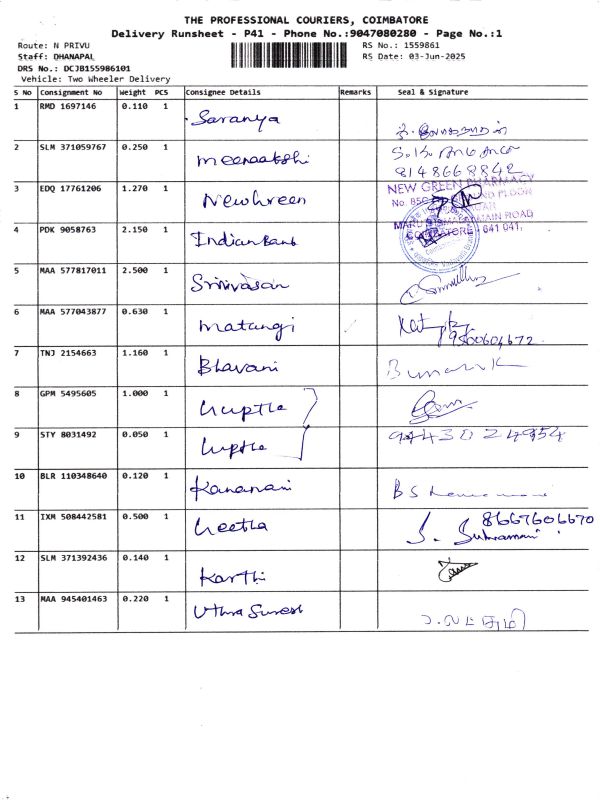 THE PROFESSIONAL COURIERS, COIMBATORE
Delivery Runsheet - P41 - Phone No.:9047080280 - Page No.:1
Route: N PRIVU RS No.: 1559861
Staff: DHANAPAL RS Date: 03-Jun-2025
DRS No.: DCJB155986101
Vehicle: Two Wheeler Delivery
S No Consignment No Weight PCS Consignee Details Remarks Seal & Signature
1 RMD 1697146 0.110 1 Saranya
2 SLM 371059767 0.250 1 meenaatshi
8148668842
3 EDQ 17761206 1.270 1 Newgreen NEW GREEN PHARMACY
MARUDHAMALAI MAIN ROAD
COIMBATORE - 641 041.
4 PDK 9058763 2.150 1 Indian Bank
5 MAA 577817011 2.500 1 Srinivasan
6 MAA 577043877 0.630 1 matangi
9500604672
7 TNJ 2154663 1.160 1 Bhavani
8 GPM 5495605 1.000 1 Guptha
9 STY 8031492 0.050 1 Guptha 9443024954
10 BLR 110348640 0.120 1 Kananani
11 IXM 508442581 0.500 1 Geetha 8667606670
12 SLM 371392436 0.140 1 Karthi
13 MAA 945401463 0.220 1 Uthra Suresh